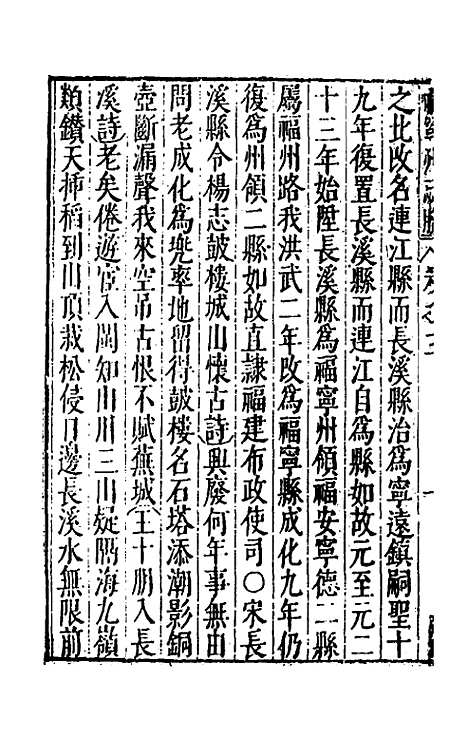 之北改名連江縣而長溪縣治為寧遠鎮嗣聖十
九年復置長溪縣而連江自為縣如故元至元二
十三年始陞長溪縣為福寧州領福安寧德二縣
屬福州路我洪武二年改為福寧縣成化九年仍
復為州領二縣如故直隸福建布政使司○宋長
溪縣令楊志鼓樓城山懷古詩興廢何年事無由
問老成化為兜率地留得鼓樓名石塔添潮影銅
壺斷漏聲我來空吊古恨不賦蕪城王十朋入長
溪詩老矣倦遊宦入閩知山川三山疑隔海九嶺
類鑽天揷稻到山頂栽松侵日邊長溪水無限前